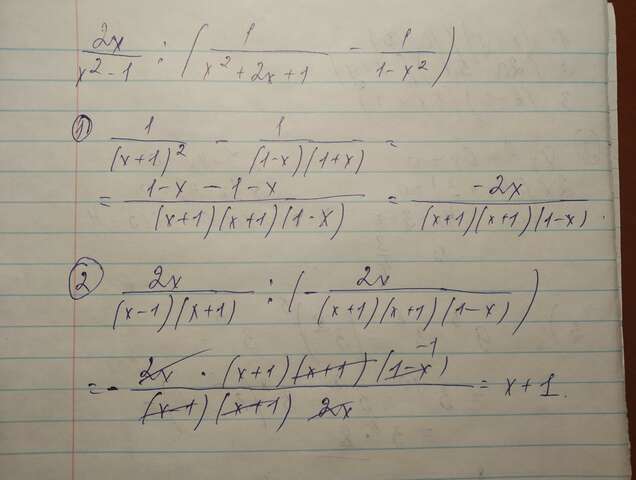 2x / (x² - 1) : ( 1 / (x² + 2x + 1) - 1 / (1 - x²) )
1) 1 / (x+1)² - 1 / ((1-x)(1+x)) =
= (1-x - 1-x) / ((x+1)(x+1)(1-x)) = -2x / ((x+1)(x+1)(1-x)).
2 2x / ((x-1)(x+1)) : ( - 2x / ((x+1)(x+1)(1-x)) )
= - 2x · (x+1)(x+1)(1-x)⁻¹ / ((x-1)(x+1) 2x) = x+1.